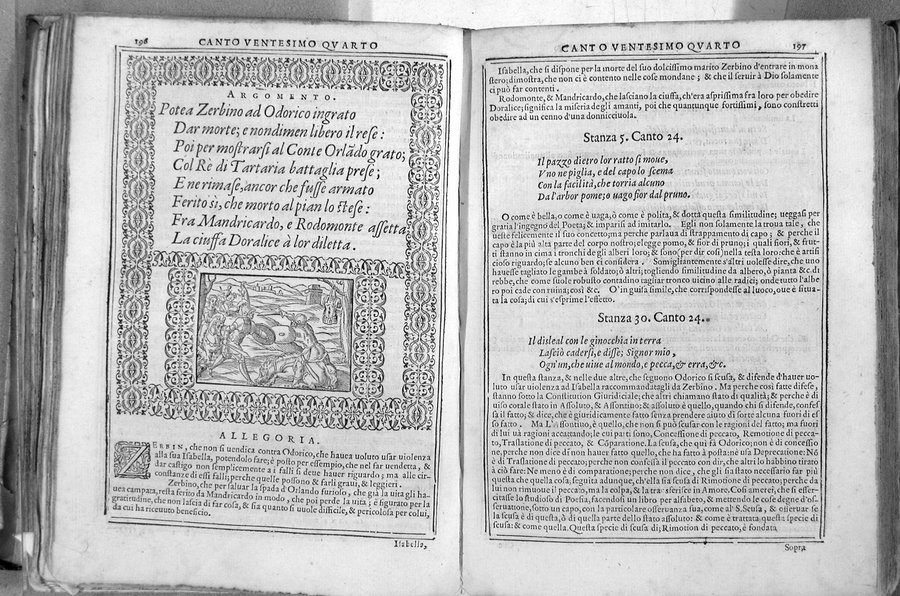 196
CANTO VENTESIMO QVARTO
ARGOMENTO.
Potea Zerbino ad Odorico ingrato
Dar morte; e nondimen libero il rese:
Poi per mostrarsi al Conte Orlãdo grato;
Col Rè di Tartaria battaglia prese;
E ne rimase, ancor che fusse armato
Ferito sì, che morto al pian lo stese:
Fra Mandricardo, e Rodomonte assetta
La ciuffa Doralice à lor diletta.
ALLEGORIA.
ZERBIN, che non si uendica contra Odorico, che haueua uoluto usar uiolenza
alla sua Isabella, potendolo fare; è posto per essempio, che nel far uendetta, &
dar castigo non semplicemente a i falli si deue hauer riguardo; ma alle cir-
constanze di essi falli; perche quelle possono & farli graui, & leggieri.
Zerbino, che per saluar la spada d'Orlando furioso, che già la uita gli ha-
uea campata, resta ferito da Mandricardo in modo, che poi perde la uita; è figurato per la
gratitudine, che non lascia di far cosa, & sia quanto si uuole difficile, & pericolosa per colui,
da cui ha riceuuto beneficio.
Isabella,
CANTO VENTESIMO QVARTO
197
Isabella, che si dispone per la morte del suo dolcissimo marito Zerbino d'entrare in mona
stero; dimostra, che non ci è contento nelle cose mondane; & che il seruir à Dio solamente
ci può far contenti.
Rodomonte, & Mandricardo, che lasciano la ciuffa, ch'era asprissima fra loro per obedire
Doralice; significa la miseria degli amanti, poi che quantunque fortissimi, sono constretti
obedire ad un cenno d'una donnicciuola.
Stanza 5. Canto 24.
Il pazzo dietro lor ratto si moue,
Vno ne piglia, e del capo lo scema
Con la facilità, che torria alcuno
Da l'arbor pome; o uago fior dal pruno.
O come è bella, o come è uaga, ò come è polita, & dotta questa similitudine; ueggasi per
gratia l'ingegno del Poeta; & imparisi ad imitarlo. Egli non solamente la troua tale, che
uenne felicemente il suo concetto; ma perche parlaua di strappamento di capo; & perche il
capo è la più alta parte del corpo nostro; elegge pomo, & fior di pruno; i quali fiori, & frut-
ti stanno in cima i tronchi de gli alberi loro; & sono (per dir così) nella testa loro: che è artifi
cioso riguardo; se alcuno ben ci considera. Somigliantemente s'altri uolesse dire, che uno
hauesse tagliato le gambe à soldato; ò altro; togliendo similitudine da albero, ò pianta &c. di
rebbe, che come suole robusto contadino tagliar tronco uicino alle radici; onde tutto l'albe
ro poi cade con ruina; così &c. O' in guisa simile, che corrispondesse al luoco, oue è situa-
ta la cosa; di cui s'esprime l'effetto.
Stanza 30. Canto 24.
Il disleal con le ginocchia in terra
Lasciò cadersi, e disse; Signor mio,
Ogn'un, che uiue al mondo, e pecca, & erra, &c.
In questa stanza, & nelle due altre, che seguono Odorico si scusa, & difende d'hauer uo-
luto usar uiolenza ad Isabella raccommandatagli da Zerbino. Ma perche così fatte difese,
stanno sotto la Constitution Giuridiciale; che altri chiamano stato di qualità; & perche è di
uiso cotale stato in Assoluto, & Assontiuo: & assoluto è quello, quando chi si difende, confes
sa il fatto; & dice, che è giuridicamente fatto senza prendere aiuto di sorte alcuna fuori di es
so fatto. Ma L'Assontiuo, è quello, che non si può scusar con le ragioni del fatto; ma fuori
di lui uà ragioni accattando; le cui parti sono, Concessione di peccato, Remotione di pecca-
to, Traslatione di peccato, & Cõparatione. La scusa, che qui fà Odorico; non è di concessio
ne, perche non dice di non hauer fatto quello, che ha fatto à posta: nè usa Deprecatione: Nõ
è di Traslatione di peccato; perche non confessa il peccato con dir, che altri lo habbino tirato
à ciò fare: Ne meno è di comparatione; perche non dice, che gli sia stato necessario far più
questa che quella cosa; seguita adunque, ch'ella sia scusa di Rimotione di peccato; perche da
lui non rimuoue il peccato, ma la colpa, & la trasferisce in Amore. Cosi amerei, che si esser-
citasse lo studioso di Poesia, facendosi un libro per alfabeto, & mettendo le cose degne d'os-
seruatione, sotto un capo, con la particolare osseruanza sua, come al S. Scusa, & osseruar se
la scusa è di questa, ò di quella parte dello stato assoluto: & come è trattata questa specie di
scusa: & come quella. Questa specie di scusa di; Rimotion di peccato, è fondata
Sopra